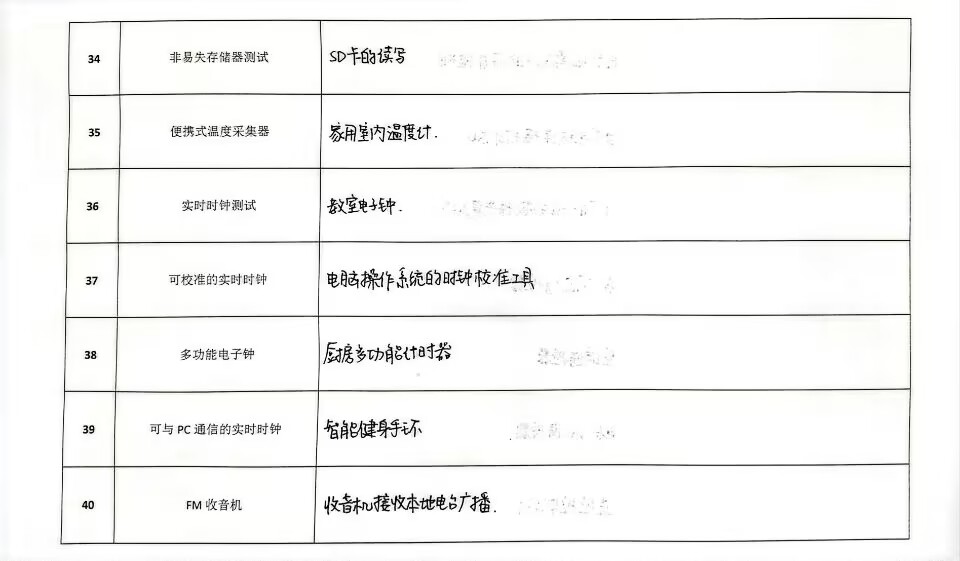 34 非易失存储器测试 SD卡的读写
35 便携式温度采集器 家用室内温度计.
36 实时时钟测试 教室电子钟.
37 可校准的实时时钟 电脑操作系统的时钟校准工具
38 多功能电子钟 厨房多功能计时器
39 可与 PC 通信的实时时钟 智能健身手环
40 FM 收音机 收音机接收本地电台广播.